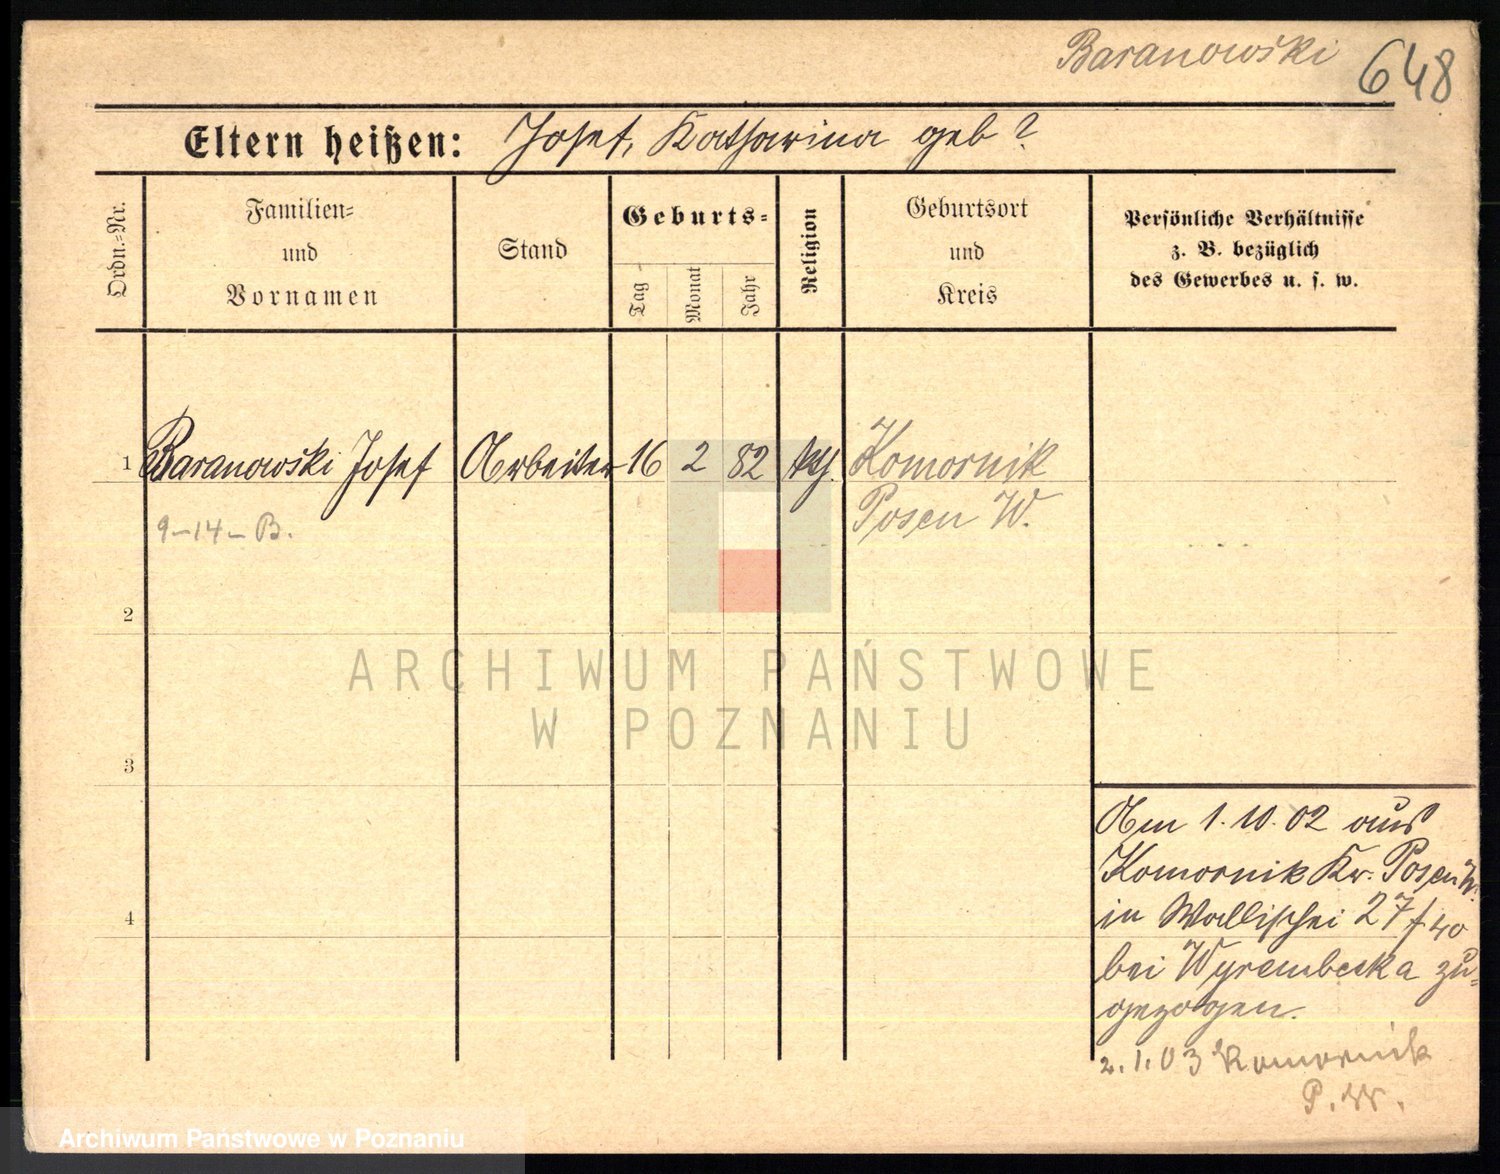 Baranowski 648
Eltern heißen: Josef, Katharina geb?
Ordn.=Nr.
Familien=
und
Vornamen
Stand
Geburts=
Tag
Monat
Jahr
Religion
Geburtsort
und
Kreis
Persönliche Verhältnisse
z. B. bezüglich
des Gewerbes u. s. w.
1 Baranowski Josef Arbeiter 16 2 82 kth. Komornik
Posen W.
9-14-B.
2
3
4
ARCHIWUM PAŃSTWOWE
W POZNANIU
Am 1.10.02 aus
Komornik Kr. Posen W.
in Wallischei 27/40
bei Wyrembecka zu=
gezogen.
2.1.03 Komornik
P.W.
Archiwum Państwowe w Poznaniu